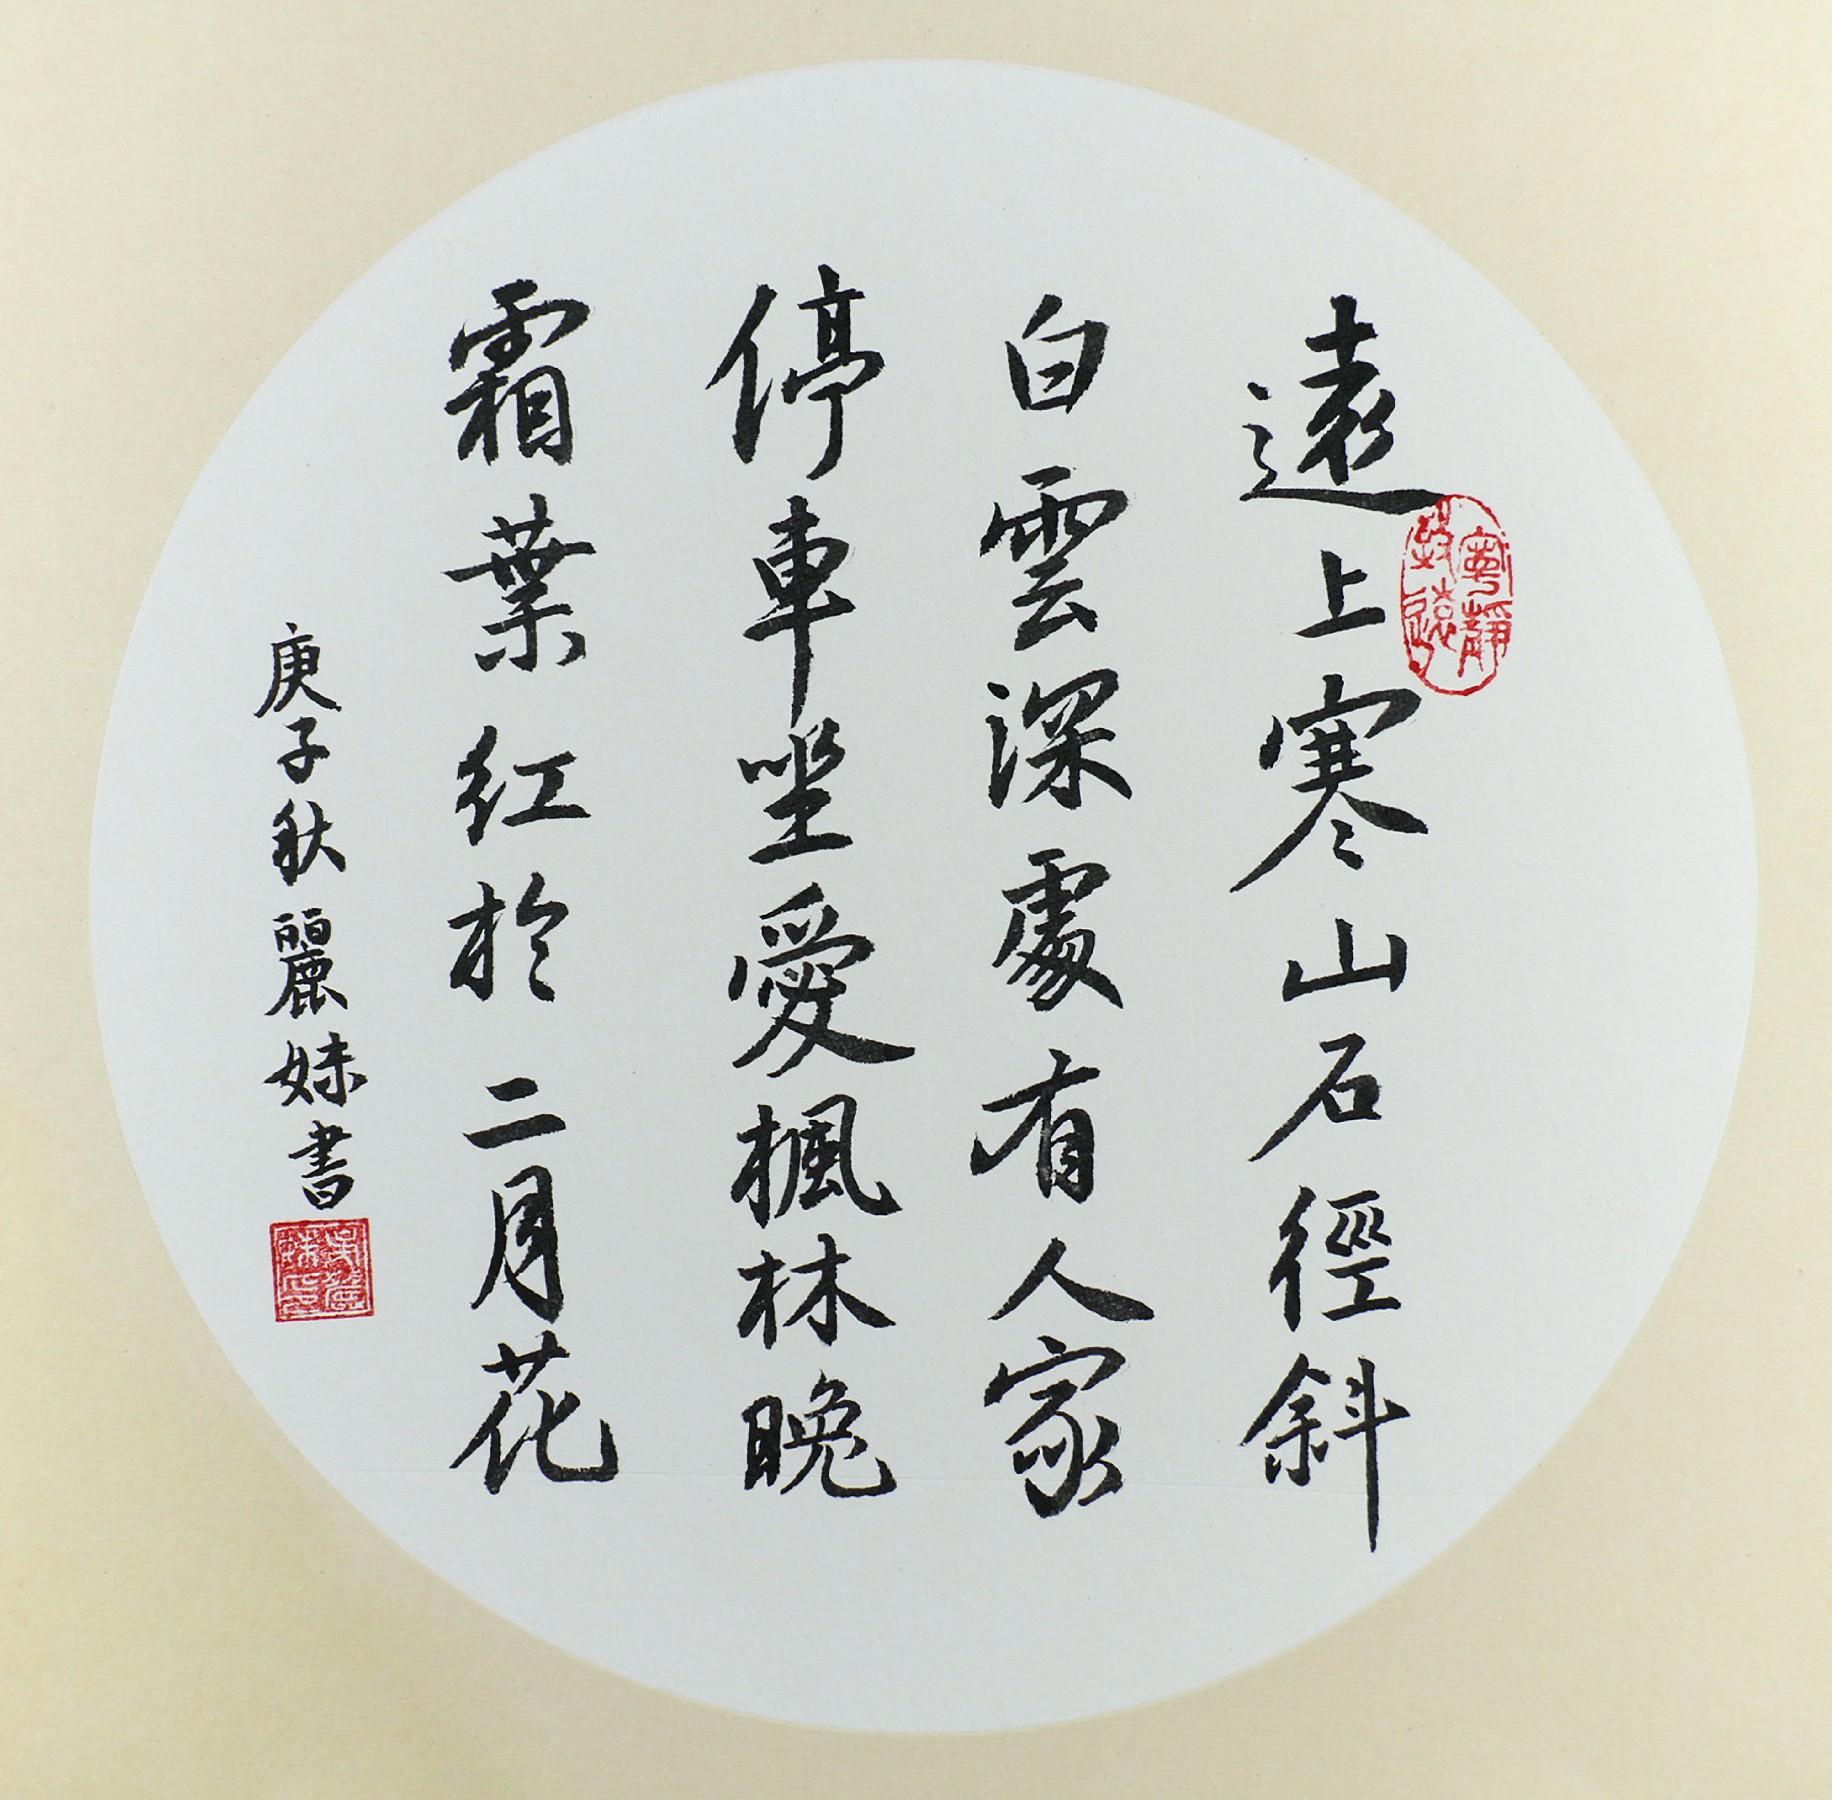 遠上寒山石徑斜
白雲深處有人家
停車坐愛楓林晚
霜葉紅於二月花
庚子秋麗妹書
寧靜
致遠